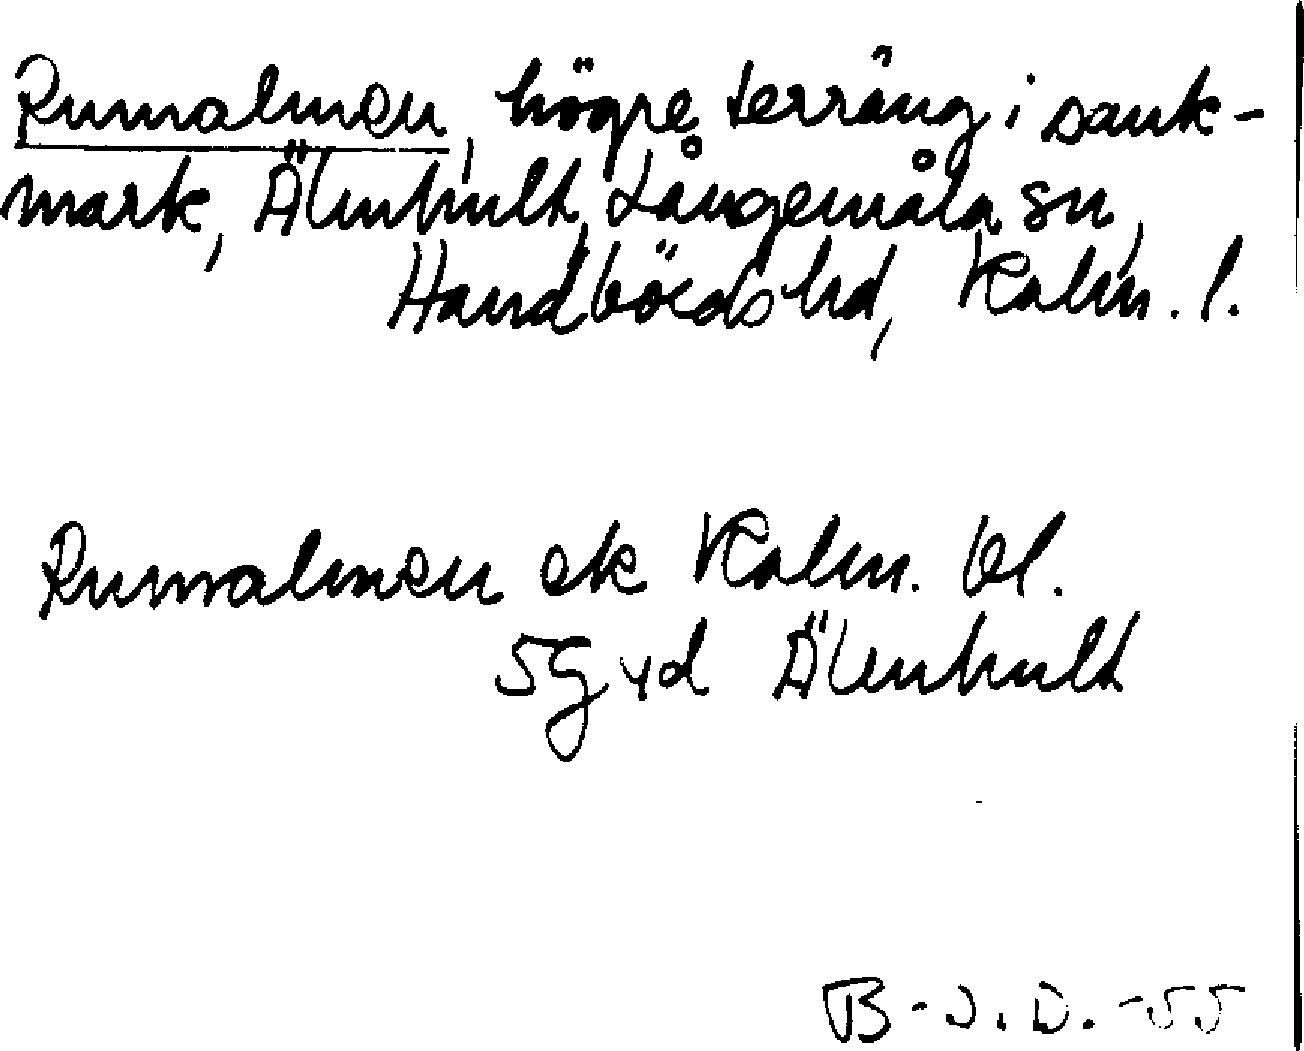 Rumalmen, högre terräng i sank-
mark, Älmhult, Långemåla sn,
Handbörds hd, Kalm. l.
Rumalmen ek Kalm. bl.
5G yd Älmhult
B-J.D. -55